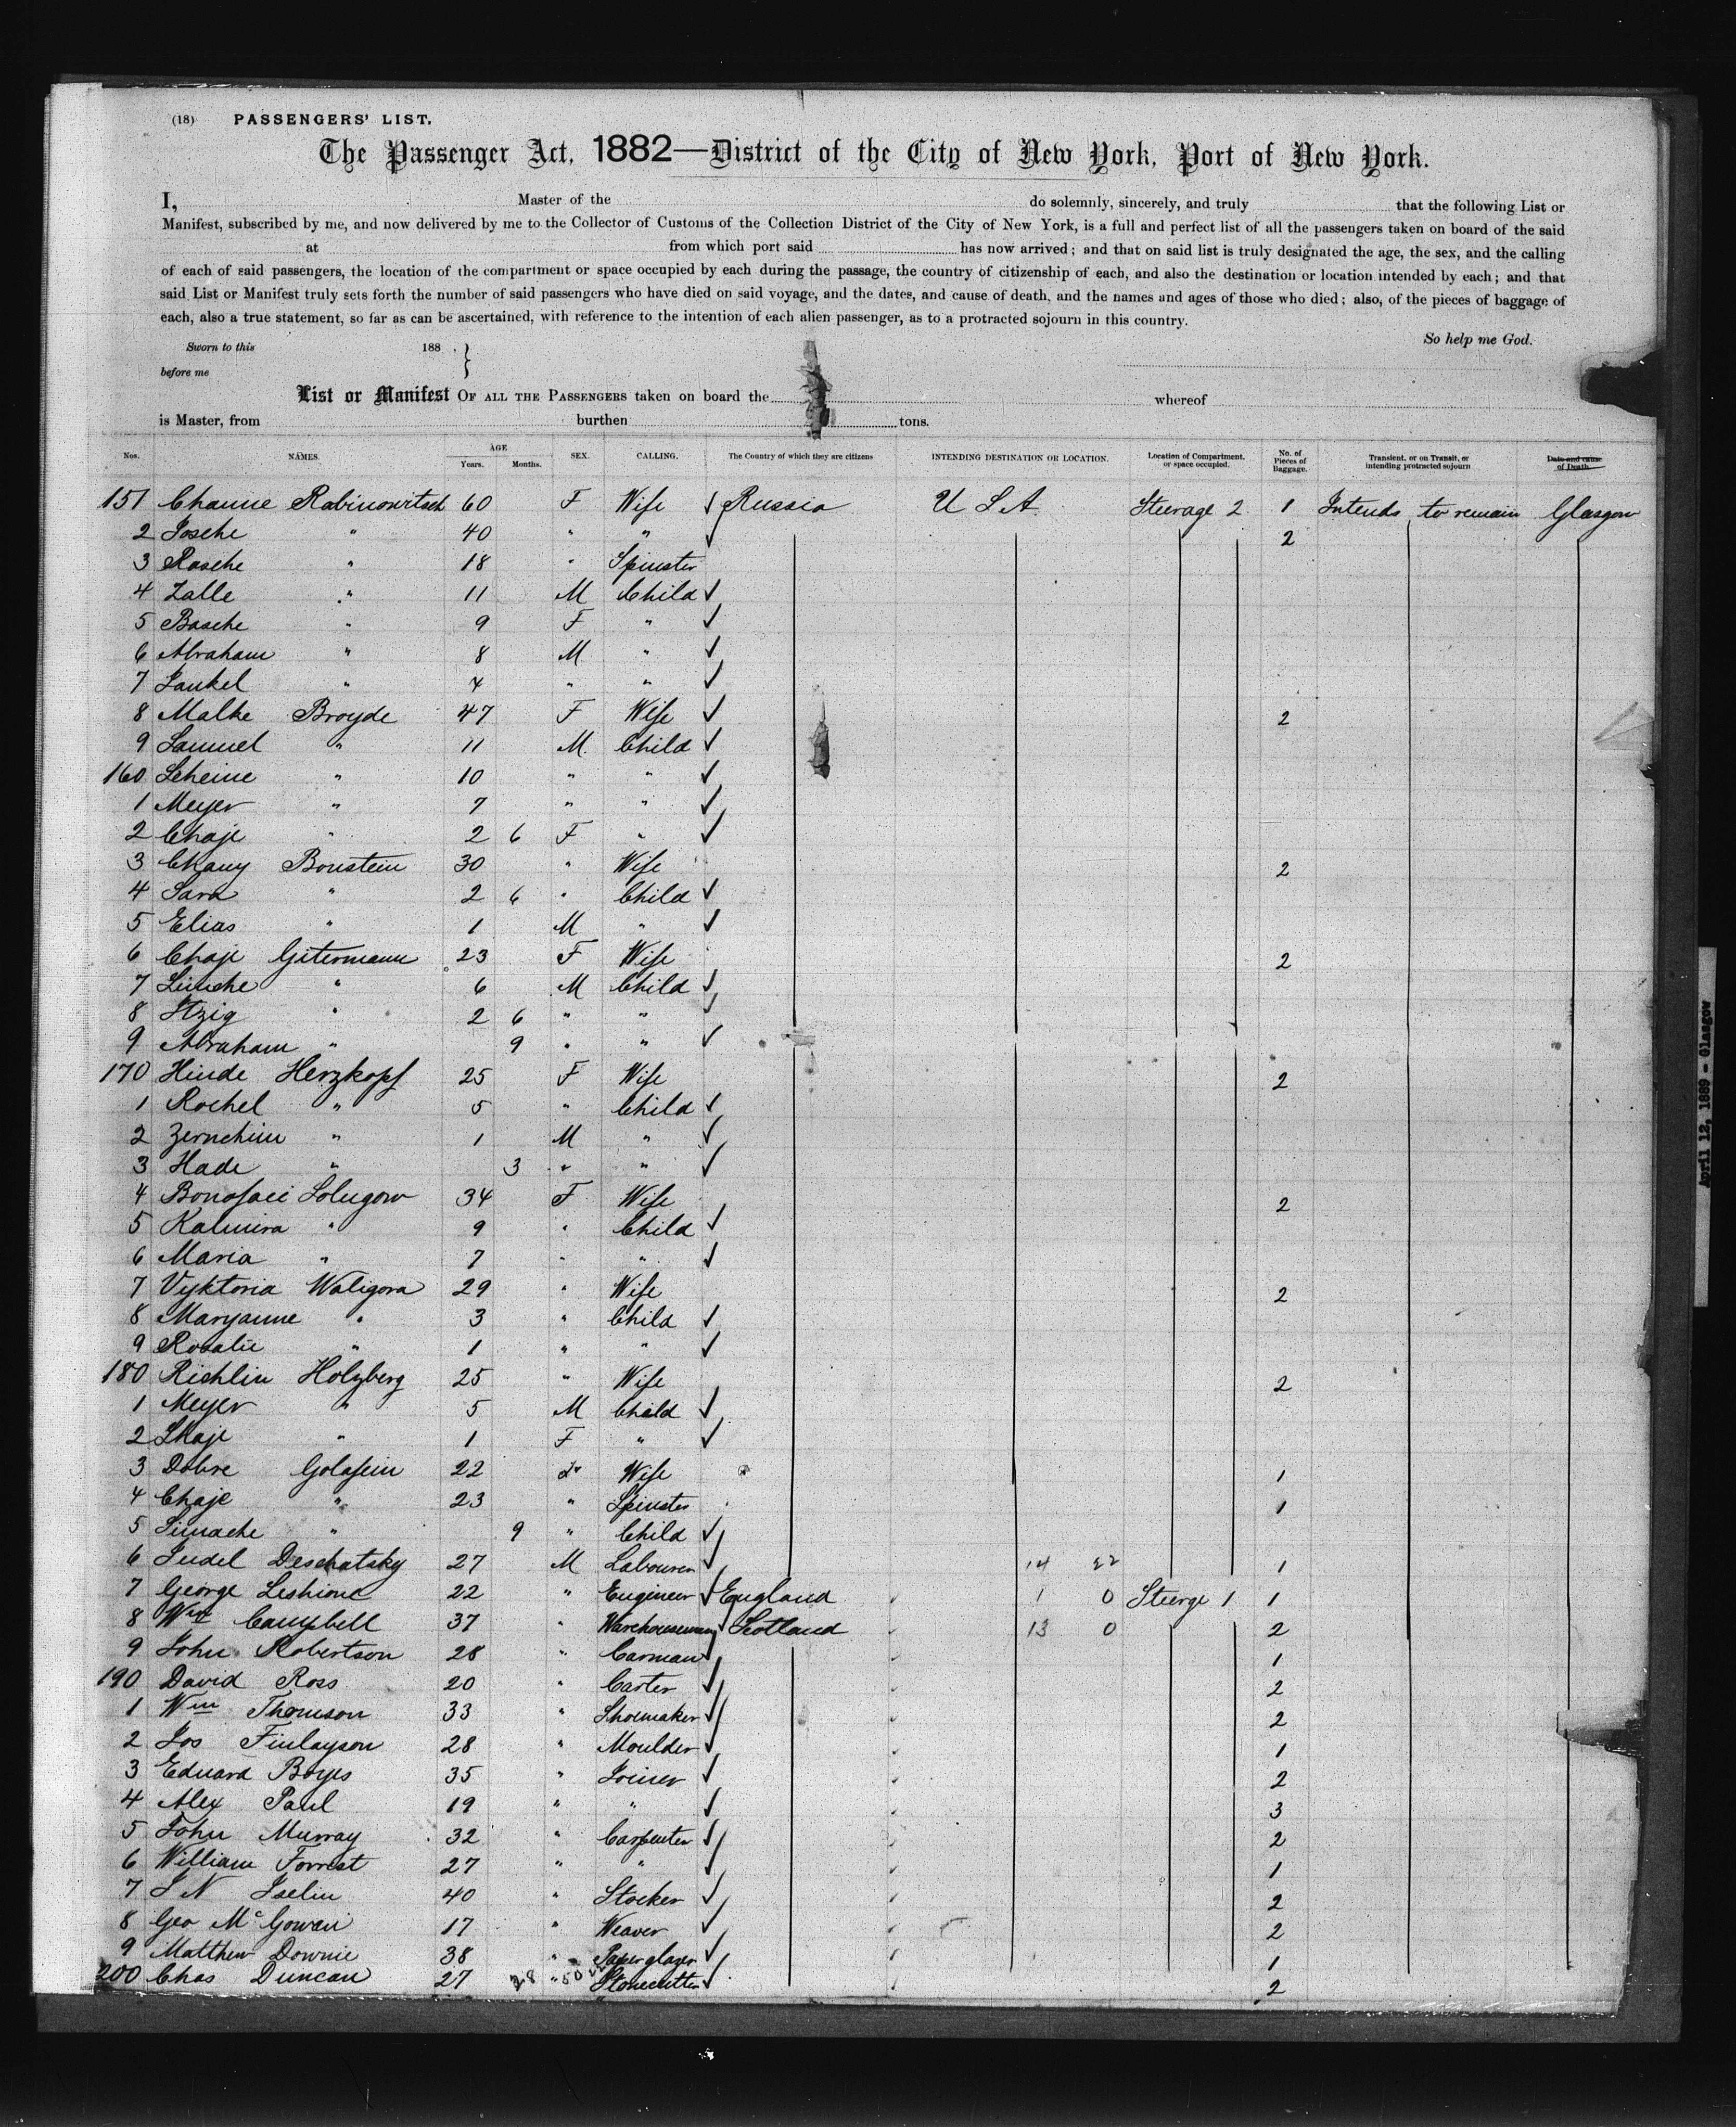 (18) PASSENGERS' LIST.
The Passenger Act, 1882—District of the City of New York, Port of New York.
I, Master of the do solemnly, sincerely, and truly that the following List or
Manifest, subscribed by me, and now delivered by me to the Collector of Customs of the Collection District of the City of New York, is a full and perfect list of all the passengers taken on board of the said
at from which port said has now arrived; and that on said list is truly designated the age, the sex, and the calling
of each of said passengers, the location of the compartment or space occupied by each during the passage, the country of citizenship of each, and also the destination or location intended by each; and that
said List or Manifest truly sets forth the number of said passengers who have died on said voyage, and the dates, and cause of death, and the names and ages of those who died; also, of the pieces of baggage of
each, also a true statement, so far as can be ascertained, with reference to the intention of each alien passenger, as to a protracted sojourn in this country.
So help me God.
Sworn to this 188 . }
before me
List or Manifest OF ALL THE PASSENGERS taken on board the whereof
is Master, from burthen tons.
Nos. NAMES. AGE Years. Months. SEX. CALLING. The Country of which they are citizens INTENDING DESTINATION OR LOCATION. Location of Compartment, or space occupied. No. of Pieces of Baggage. Transient, or on Transit, or intending protracted sojourn Date and cause of Death.
151 Channe Rabinowitsch 60 F Wife ✓ Russia U S A Steerage 2 1 Intends to remain Glasgow
2 Josche " 40 " " ✓ 2
3 Rasche " 18 " Spinster
4 Zalle " 11 M Child ✓
5 Basche " 9 F " ✓
6 Abraham " 8 M " ✓
7 Jankel " 4 " " ✓
8 Malke Broyde 47 F Wife ✓ 2
9 Samuel " 11 M Child ✓
160 Scheine " 10 " " ✓
1 Meyer " 7 " " ✓
2 Chaje " 2 6 F " ✓
3 Chany Bonstein 30 " Wife 2
4 Sara " 2 6 " Child ✓
5 Elias " 1 M " ✓
6 Chaje Gitermann 23 F Wife 2
7 " 6 M Child ✓
8 Itzig " 2 6 " " ✓
9 Abraham " 9 " " ✓
170 Hinde Herzkopf 25 F Wife 2
1 Rochel " 5 " Child ✓
2 " 1 M " ✓
3 Hade " 3 " " ✓
4 34 F Wife 2
5 Kalmira " 9 " Child ✓
6 Maria " 7 " " ✓
7 Vyktoria Waligora 29 " Wife 2
8 Maryanne " 3 " Child ✓
9 Rosalie " 1 " " ✓
180 Richlin Holzberg 25 " Wife 2
1 Meyer " 5 M Child ✓
2 " 1 F " ✓
3 Dobre 22 Wife 1
4 Chaje " 23 " Spinster 1
5 Simache " 9 " Child ✓
6 Judel Deschatsky 27 M Labourer ✓ 14 22 1
7 George 22 " Engineer ✓ England 1 0 Steerge 1 1
8 Wm Campbell 37 " Warehouseman Scotland 13 0 2
9 John Robertson 28 " Carman 1
190 David Ross 20 " Carter ✓ 2
1 Wm Thomson 33 " Shoemaker ✓ 2
2 Jos Finlayson 28 " Moulder ✓ 1
3 Edward Boyes 35 " Joiner ✓ 2
4 Alex Paul 19 " " ✓ 3
5 John Murray 32 " Carpenter ✓ 2
6 William Forrest 27 " " ✓ 1
7 J N Iselin 40 " Stocker ✓ 2
8 Geo McGowan 17 " Weaver ✓ 2
9 Matthew Downie 38 " Paperglazer ✓ 1
200 Chas Duncan 27 28 " 50 Stonecutter ✓ 2
April 12, 1889 - Glasgow